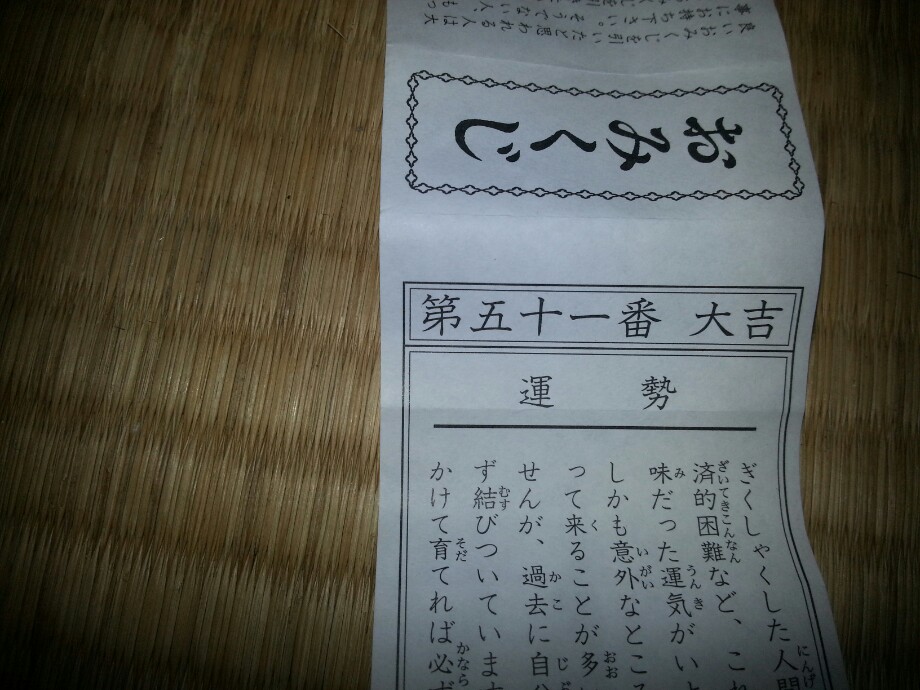 良いおみくじを引いたと思われる人は大
事にお持ち下さい。そうでない人、もっ
おみくじ
第五十一番 大吉
運勢
ぎくしゃくした人間
済的困難など、これ
味だった運気がい
しかも意外なところ
って来ることが多
せんが、過去に自分
ず結びついていま
かけて育てれば必ず